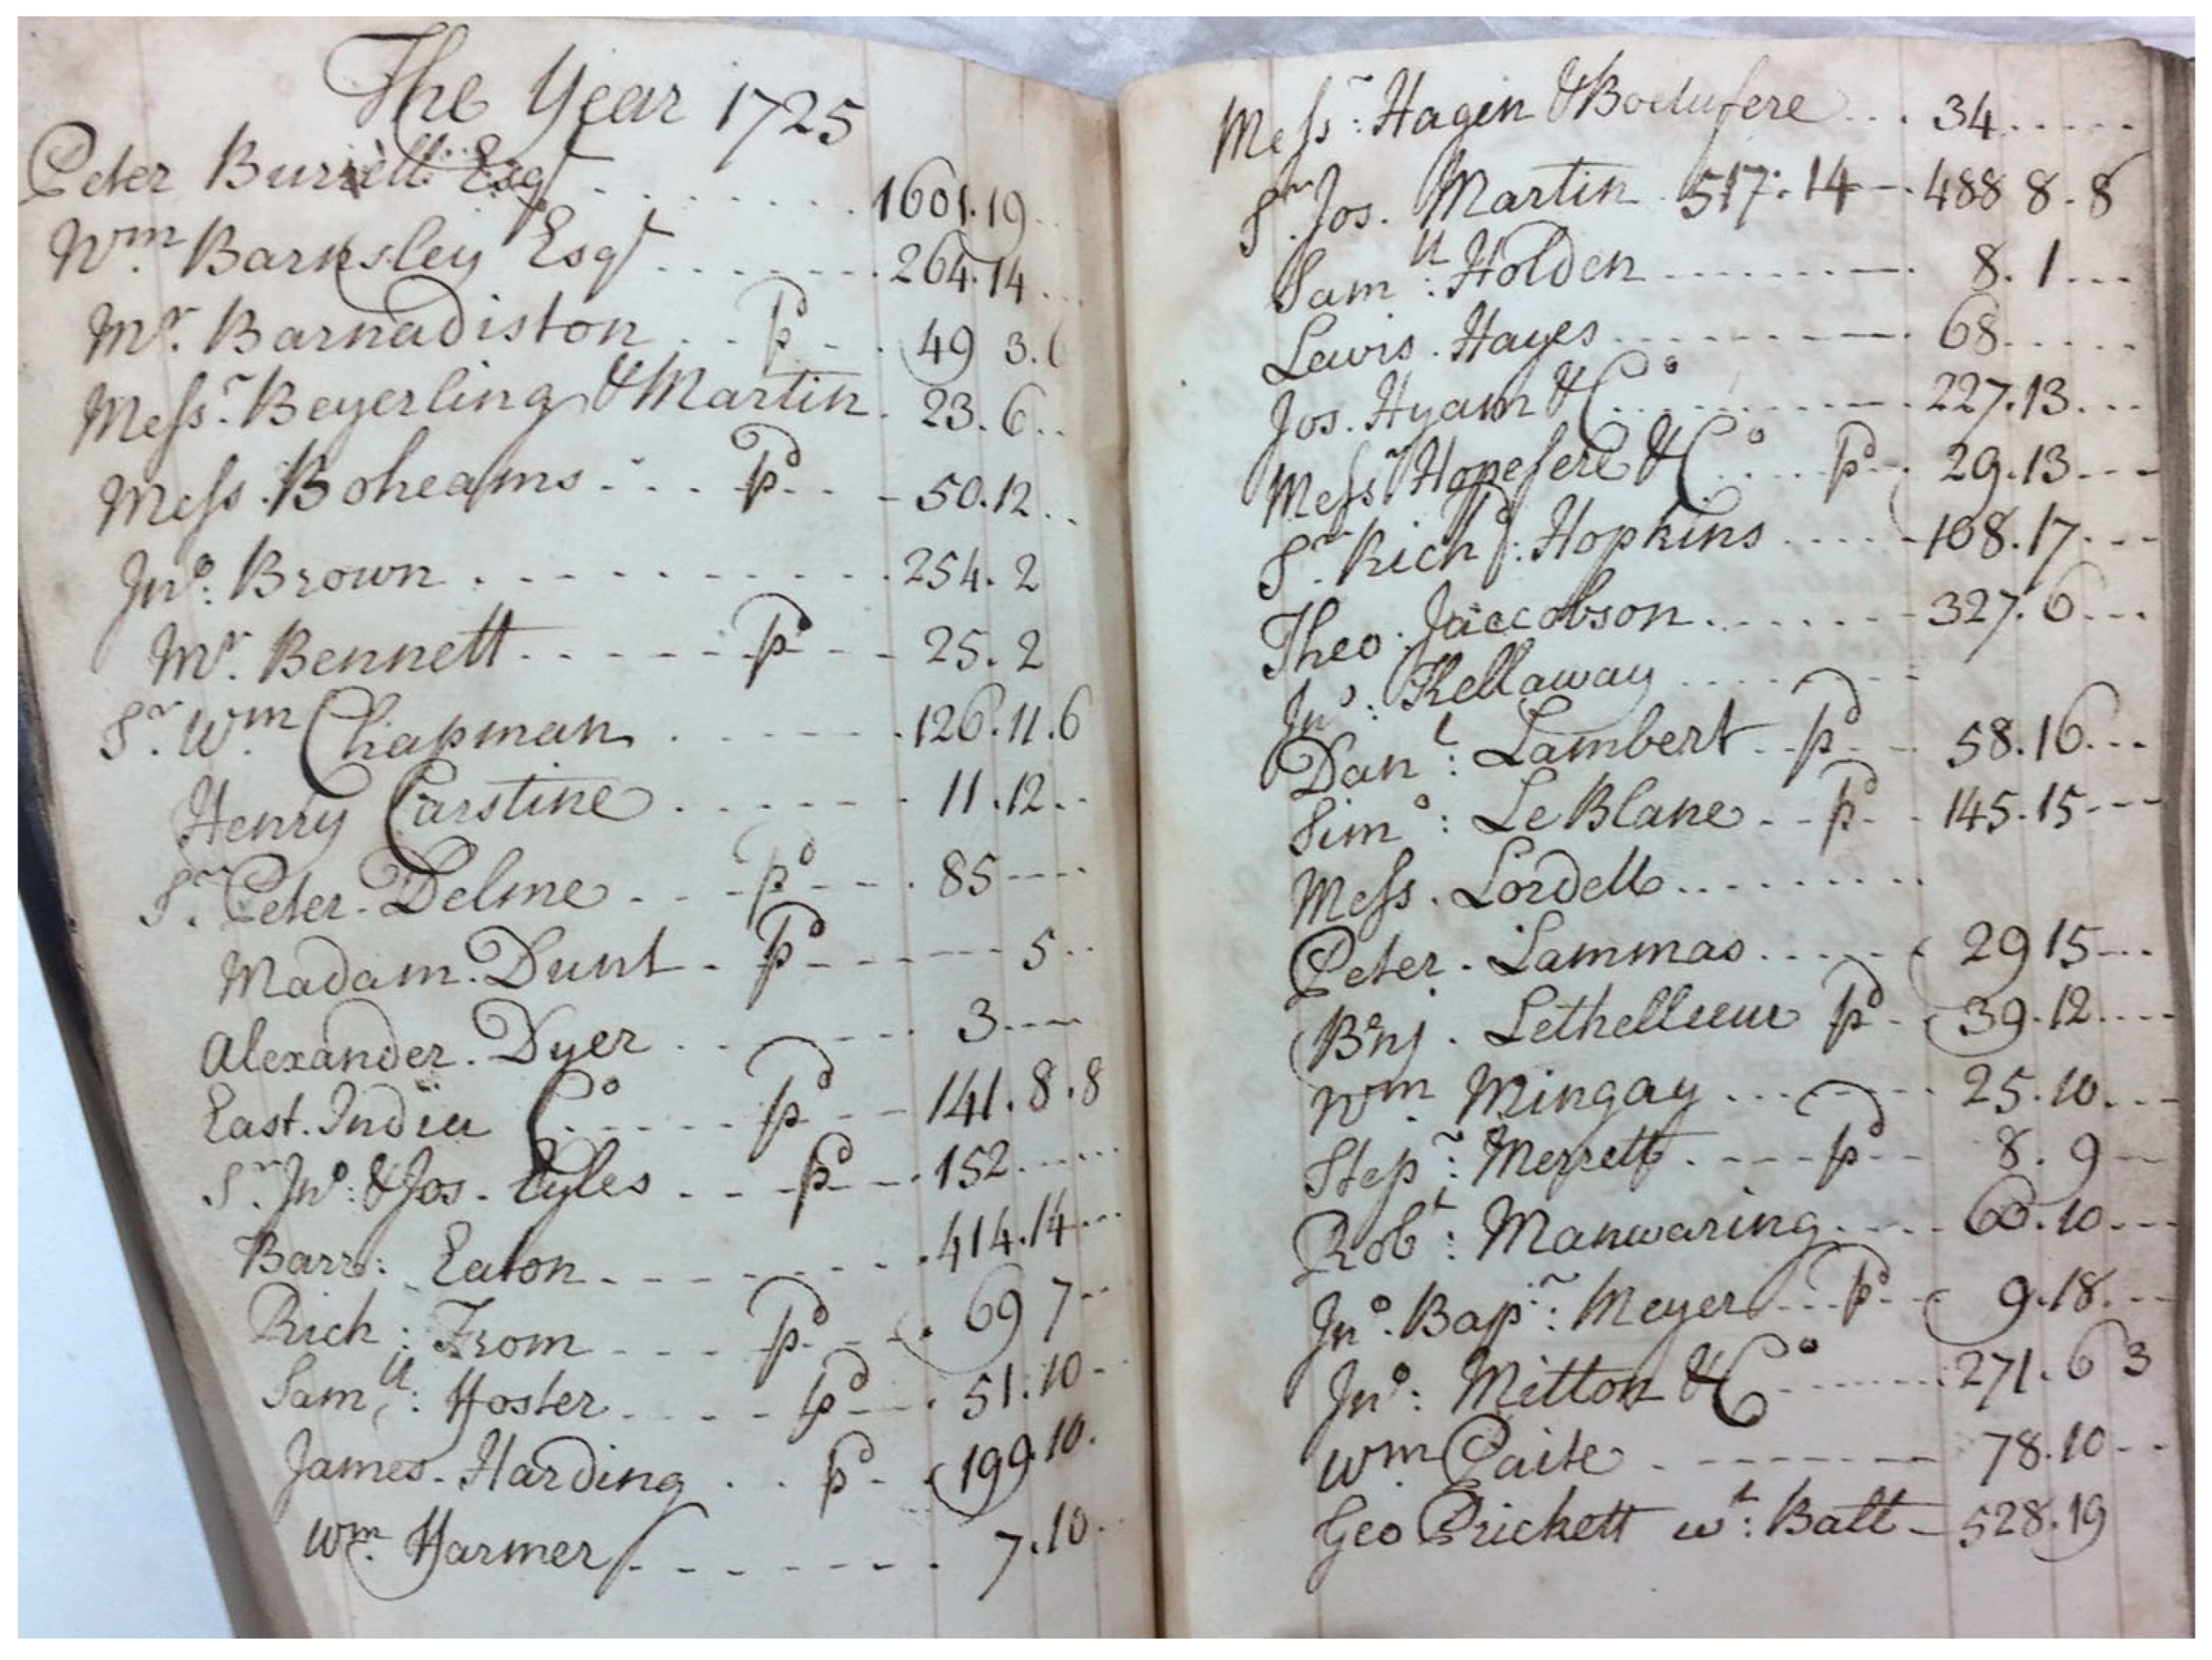 The Year 1725
Peter Burrell Esqr 1601.19
Wm. Barnsley Esqr 264.14
Mr. Barnadiston pd 49 3.6
Messr. Beyerling & Martin 23.6
Mess. Boheams pd 50.12
Jno: Brown 254.2
Mr. Bennett pd 25.2
Sr. Wm Chapman 126.11.6
Henry Carstine 11.12
Sr. Peter Delme pd 85
Madam. Dunt pd 5
Alexander. Dyer 3
East. India Co pd 141.8.8
Sr. Jno: & Jos. Eyles pd 152
Barr: Eaton 414.14
Rich: From pd 69 7
Samll: Hoster pd 51.10
James. Harding pd 199.10
Wm. Harmer 7.10
Messr: Hagen & 34
Sr. Jos. Martin 517:14 488 8.8
Samll: Holden 8.1
Lewis. Hayes 68
Jos. Hyam & Co 227.13
Messr & Co pd 29.13
Sr. Richd: Hopkins 108.17
Theo. Jaccobson 327.6
Jno: Kellaway
Danl: Lambert pd 58.16
Simo: Le Blanc pd 145.15
Mess. Lordell
Peter. Lammas 29 15
Benj. Lethellieur pd 39.12
Wm. Mingay 25.10
Step: Merrett pd 8.9
Robt: Manwaring 60.10
Jno. Bap: Meyer pd 9.18
Jno: Mitton & Co 271.6 3
Wm. Paite 78.10
Geo Prickett wt: Batt 528.19